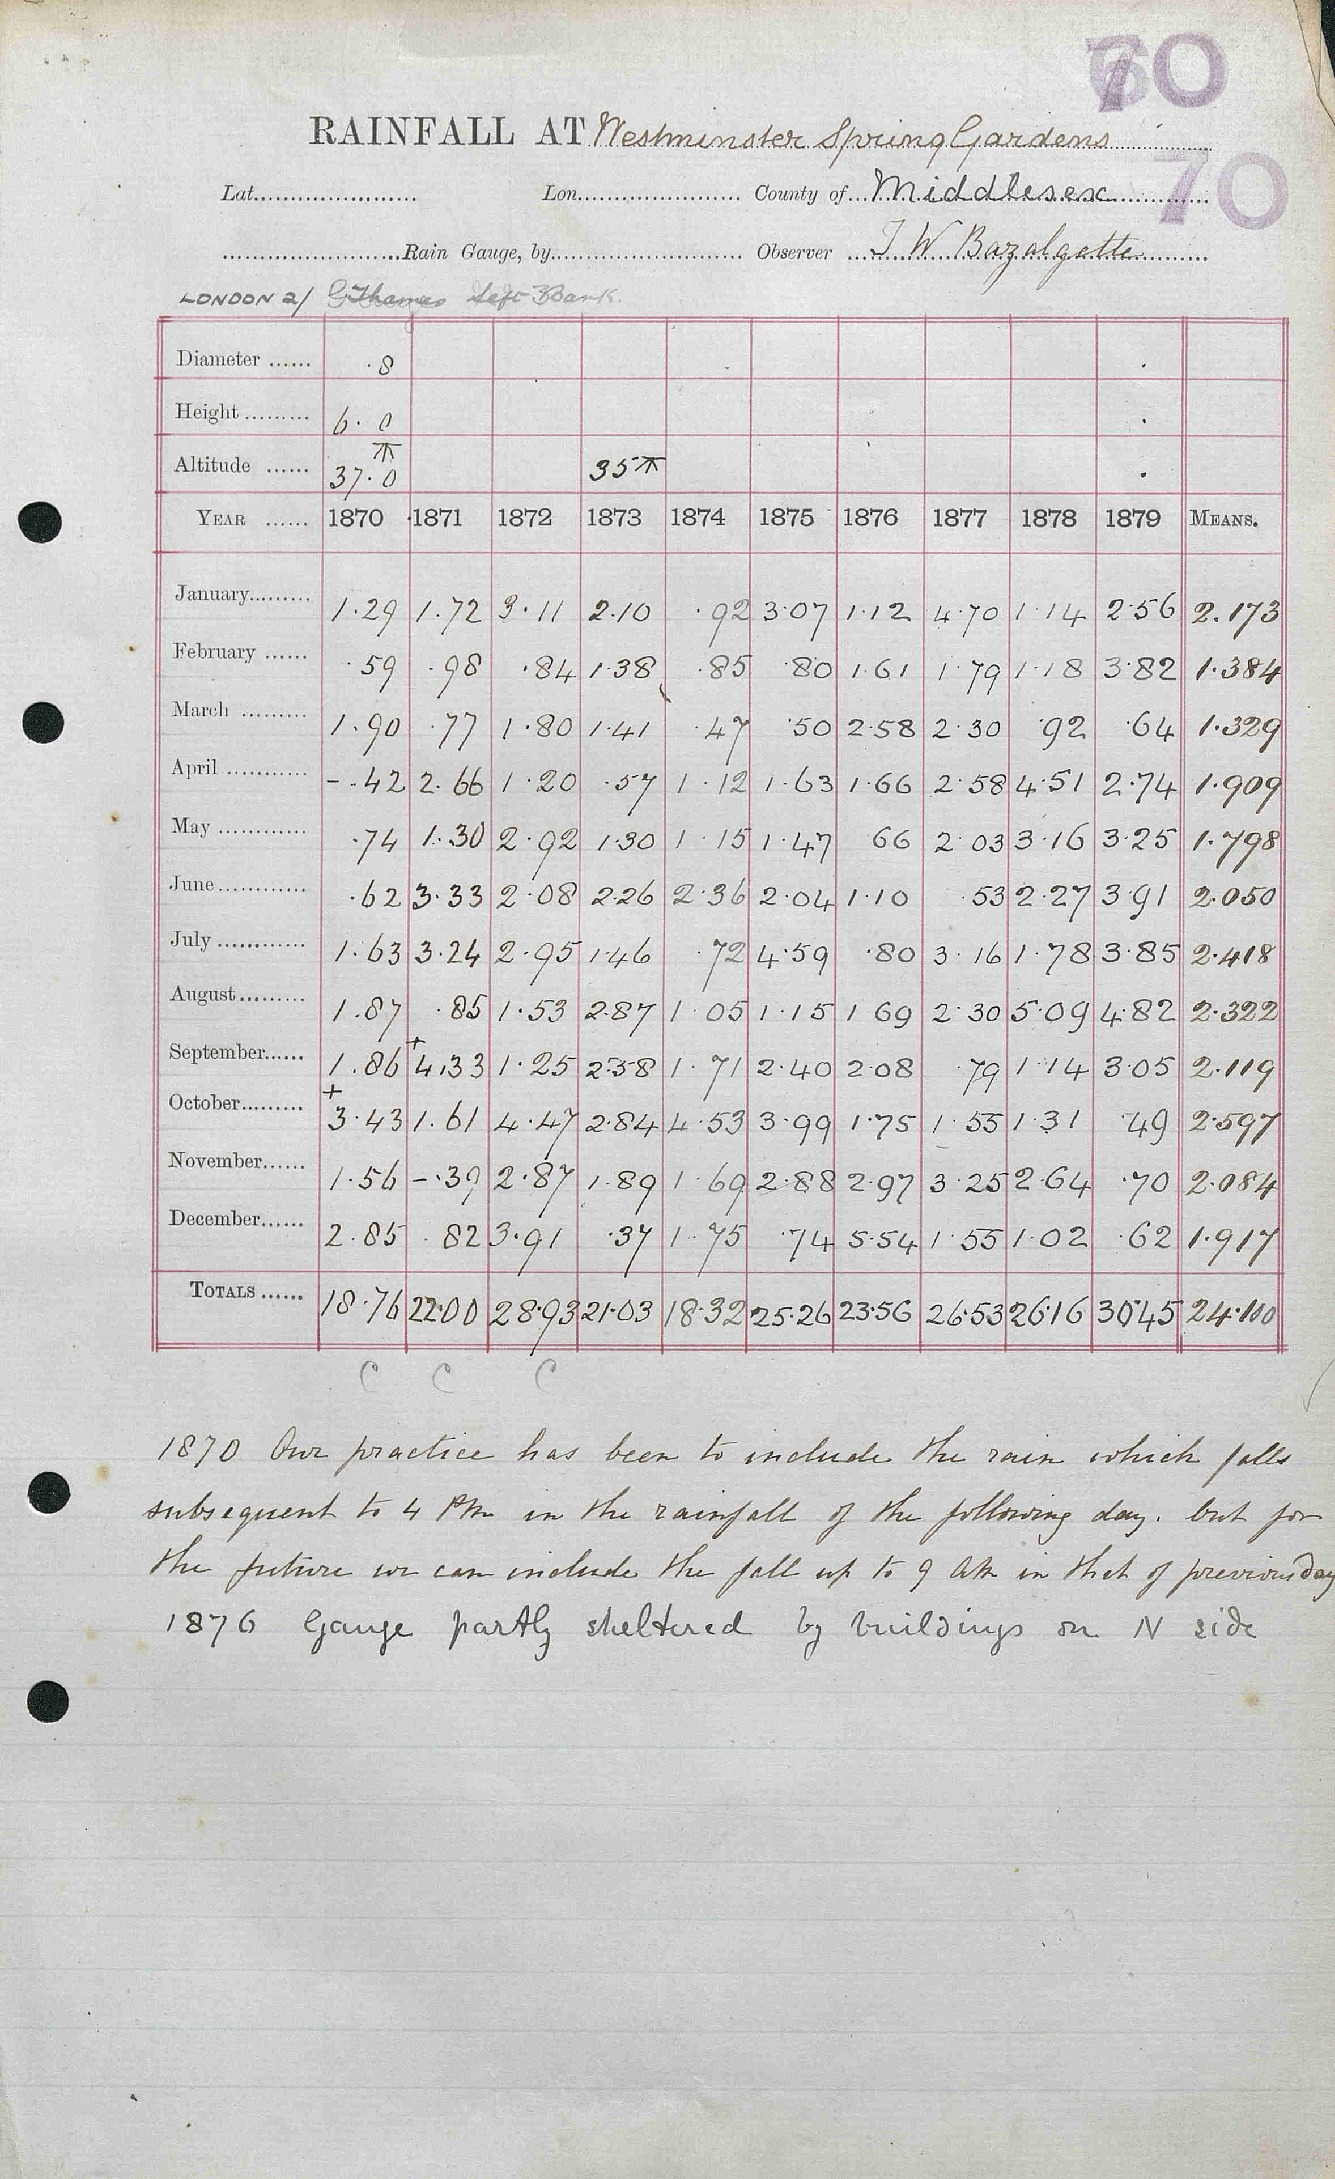 70
RAINFALL AT Westminster Spring Gardens
70
Lat...................... Lon....................... County of... Middlesex
.........................Rain Gauge, by.......................... Observer ... J W Bazalgette
LONDON 2/ Thames Left Bank.
Diameter ...... .8
Height ......... 6. 0
Altitude ...... 37.0 35
YEAR ...... 1870 1871 1872 1873 1874 1875 1876 1877 1878 1879 MEANS.
January......... 1.29 1.72 3.11 2.10 .92 3.07 1.12 4.70 1.14 2.56 2.173
February ...... .59 .98 .84 1.38 .85 .80 1.61 1.79 1.18 3.82 1.384
March ......... 1.90 .77 1.80 1.41 .47 .50 2.58 2.30 .92 .64 1.329
April ............ -.42 2.66 1.20 .57 1.12 1.63 1.66 2.58 4.51 2.74 1.909
May ............ .74 1.30 2.92 1.30 1.15 1.47 66 2.03 3.16 3.25 1.798
June............ .62 3.33 2.08 2.26 2.36 2.04 1.10 .53 2.27 3.91 2.050
July ............ 1.63 3.24 2.95 1.46 .72 4.59 .80 3.16 1.78 3.85 2.418
August......... 1.87 .85 1.53 2.87 1.05 1.15 1 69 2.30 5.09 4.82 2.322
September...... 1.86 +4.33 1.25 2.38 1.71 2.40 2.08 .79 1.14 3.05 2.119
October......... +3.43 1.61 4.47 2.84 4.53 3.99 1.75 1.55 1.31 .49 2.597
November...... 1.56 -.39 2.87 1.89 1.69 2.88 2.97 3.25 2.64 .70 2.084
December...... 2.85 .82 3.91 .37 1.75 .74 5.54 1.55 1.02 .62 1.917
TOTALS ...... 18.76 22.00 28.93 21.03 18.32 25.26 23.56 26.53 26.16 30.45 24.100
C C C
1870 Our practice has been to include the rain which falls
subsequent to 4 PM in the rainfall of the following day. but for
the future we can include the fall up to 9 AM in that of previous day
1876 Gauge partly sheltered by buildings on N side